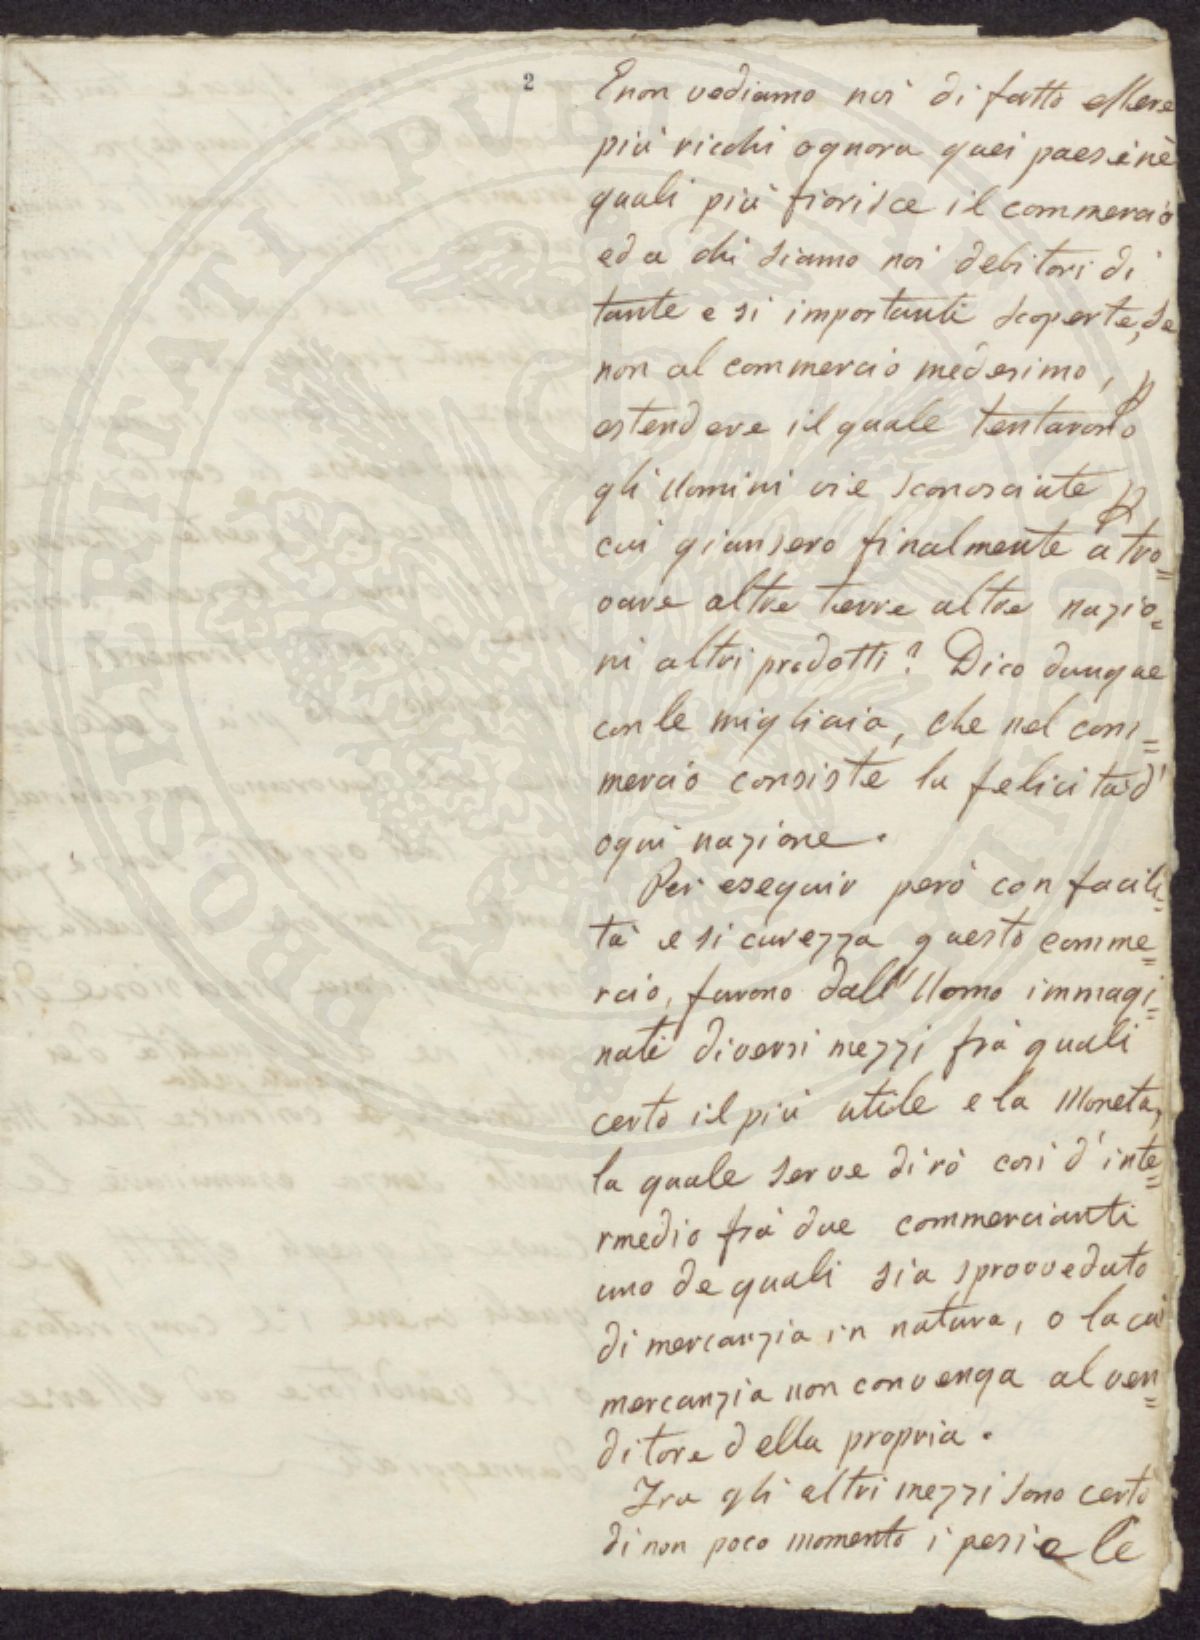 2
E non vediamo noi di fatto essere
più ricchi ognora quei paesi nè
quali più fiorisce il commercio
ed a chi siamo noi debitori di
tante e si importanti scoperte, se
non al commercio medesimo, p
estendere il quale tentarono
gli Uomini vie sconosciute p
cui giunsero finalmente a tro=
vare altre terre altre nazio=
ni altri prodotti? Dico dunque
con le migliaia, che nel com=
mercio consiste la felicità d'
ogni nazione.
Per eseguir però con facili=
tà e sicurezza questo comme=
rcio, furono dall'Uomo immagi=
nati diversi mezzi frà quali
certo il più utile e la Moneta,
la quale serve dirò così d'inte=
rmedio frà due commercianti
uno de quali sia sprovveduto
di mercanzia in natura, o la cui
mercanzia non convenga al ven=
ditore della propria.
Fra gli altri mezzi sono certo
di non poco momento i pesi e le
PROSPERITATI PVBLICAE